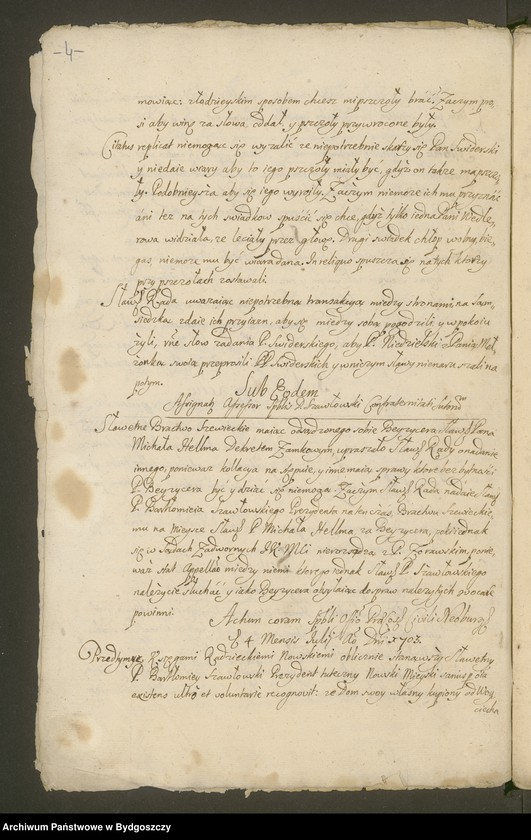 -4-
mowiąc: złodzieyskim sposobem chcesz mi pszczoły brać. Zaczym pro
si aby winę za słowa oddał, y pszczoły przywrocone były.
Citatus replicat niemogąc się wyżalić ze niepotrzebnie skarży się Pan Swiderski
y niedaie wiary aby to iego pszczoły miały być, gdyż on takze ma pszczo
ły. Podobnieysza aby się iego wyroiły. Zaczym niemoże ich mu przyznać
ani tez na tych swiadkow spuścić się chce, gdyż tylko iedna Pani
rowa widziała, ze leciały przez głowę. Drugi swiadek chłop wolny, bie
gas, niemoże mu być wiara dana. In reliquo spuszcza się na tych ktorzy
przy pszczołach zostawali.
Sław: Rada uwazaiąc niepotrzebną transakcyą między stronami, na Sam
siedzką zdaie ich przyiazn, aby się między sobą pogodzili, y w pokoiu
żyli, słow zadania P. Swiderskiego, aby P. Niedzielski z Panią Mał
żonką swoią przeprosili PP Swiderskich y w niczym sławy nienaruszali na
potym.
Sub Eodem
Assignatq Assessor Sptblis D. Szawłowski Confraternitati
Sławetne Bractwo Szewieckie maiąc odsądzonego sobie Beyzycera Sław: Pana
Michała Hellma Dekretem Zamkowym, upraszało Sław: Rady o nadanie
innego, poniewaz kollacya na stopnie, y inne maią sprawy ktore bez bytności
P. Beyzycera być y dziać się niemogą. Zaczym Sław: Rada nadaie Sław:
P. Bartłomieia Szawłowskiego Prezydenta na ten czas, Bractwu Szewieckie
mu na Mieysce Sław: P. Michała Hellma za Beyzycera, poki iednak
się w Sądach Zadwornych JKMCi nierozsądzą z P. Zorawskim, ponie
wasz stat Appellatio między niemi, ktorego iednak Sław: P. Szawłowskiego
należycie słuchać y iako Beyzycera obsyłaiąc do spraw należytych zwoływać
powinni.
Actum coram Sptbli Offo Civili Neoburgs
D. 4 Mensis Julij Ao Dni 1703.
Przed tymże Xsięgami Radzieckiemi Nowskiemi obliczne stanąwszy Sławetny
P. Bartłomiey Szawłowski Prezydent tuteczny Nowski Mieyski sanus p oia
existens ultro et voluntarie recognovit: ze dom swoy własny kupiony od Woy
ciecha
Archiwum Państwowe w Bydgoszczy